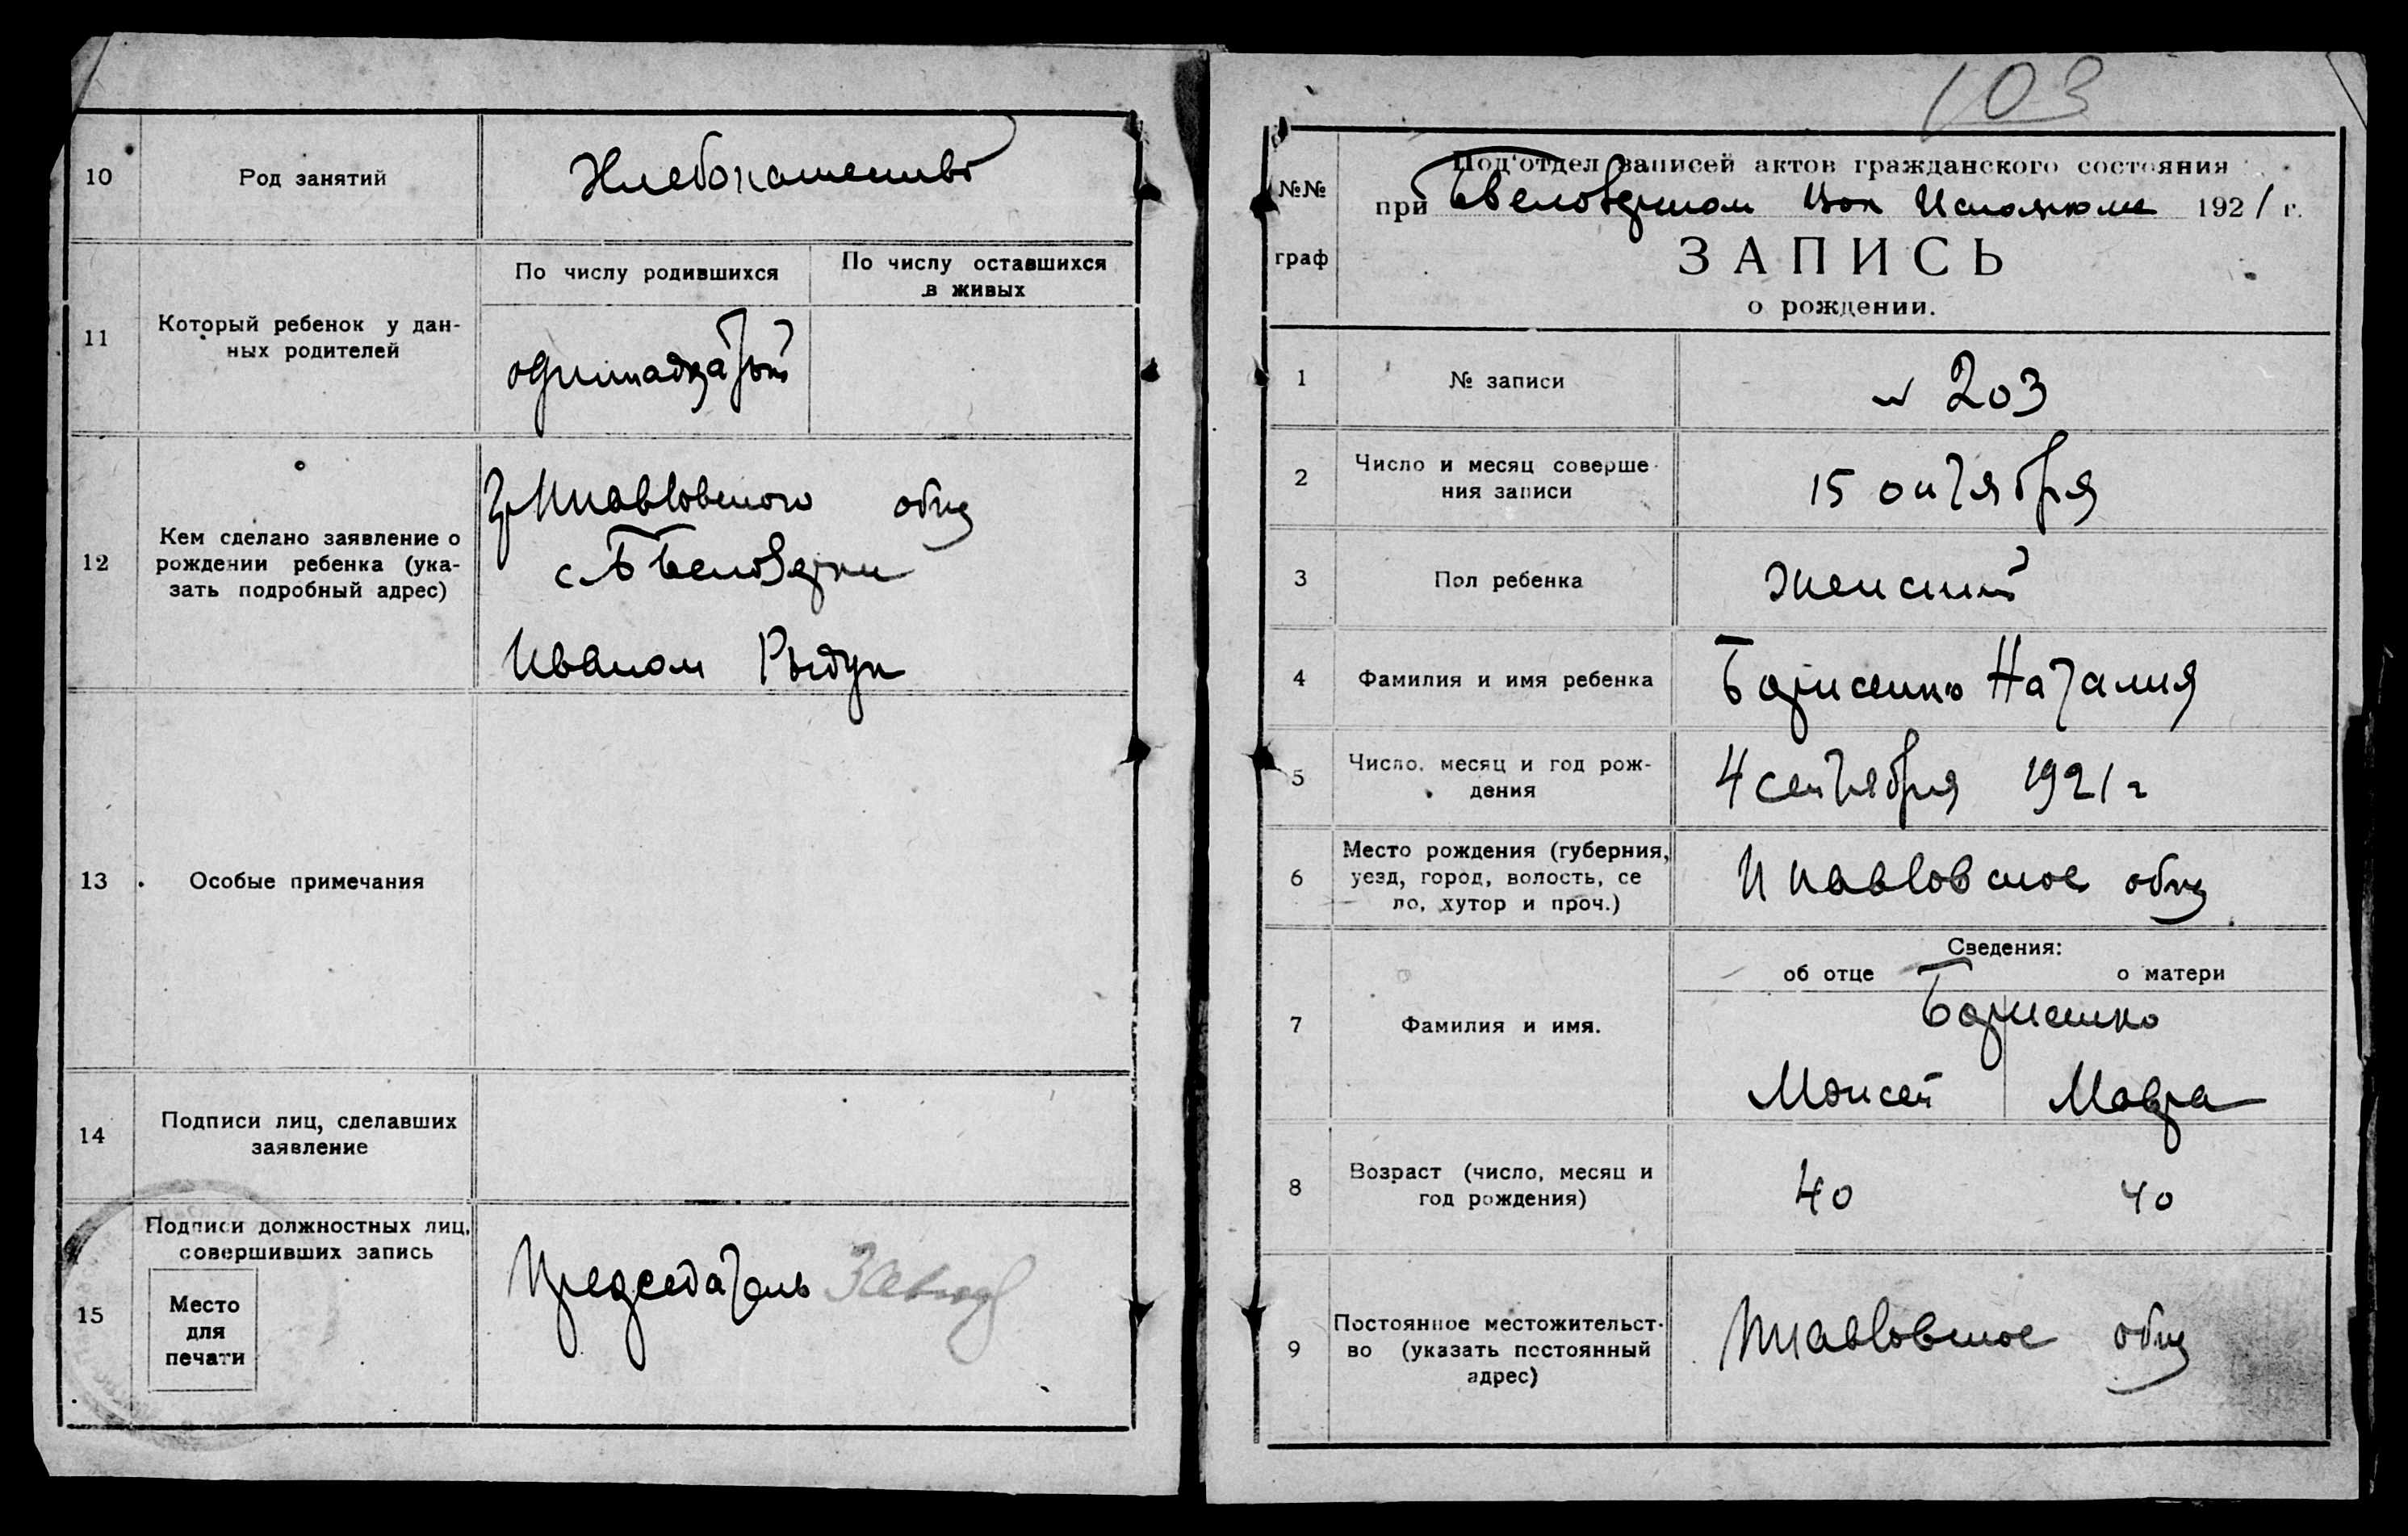 10
Род занятий
Хлебопашество
11
Который ребенок у дан-
ных родителей
По числу родившихся
По числу оставшихся
в живых
одиннадцатый
12
Кем сделано заявление о
рождении ребенка (ука-
зать подробный адрес)
общ
с. Б Белозерки
Иваном
13
Особые примечания
14
Подписи лиц, сделавших
заявление
15
Подписи должностных лиц,
совершивших запись
Место
для
печати
Председатель
103
№№
граф
Под'отдел записей актов гражданского состояния
при 1921 г.
ЗАПИСЬ
о рождении.
1
№ записи
N 203
2
Число и месяц соверше-
ния записи
15 октября
3
Пол ребенка
женский
4
Фамилия и имя ребенка
Борисенко Наталия
5
Число, месяц и год рож-
дения
4 сентября 1921 г
6
Место рождения (губерния,
уезд, город, волость, се
ло, хутор и проч.)
общ
7
Фамилия и имя.
Сведения:
об отце
о матери
Борисенко
Моисей
Мавра
8
Возраст (число, месяц и
год рождения)
40
40
9
Постоянное местожительст-
во (указать постоянный
адрес)
общ